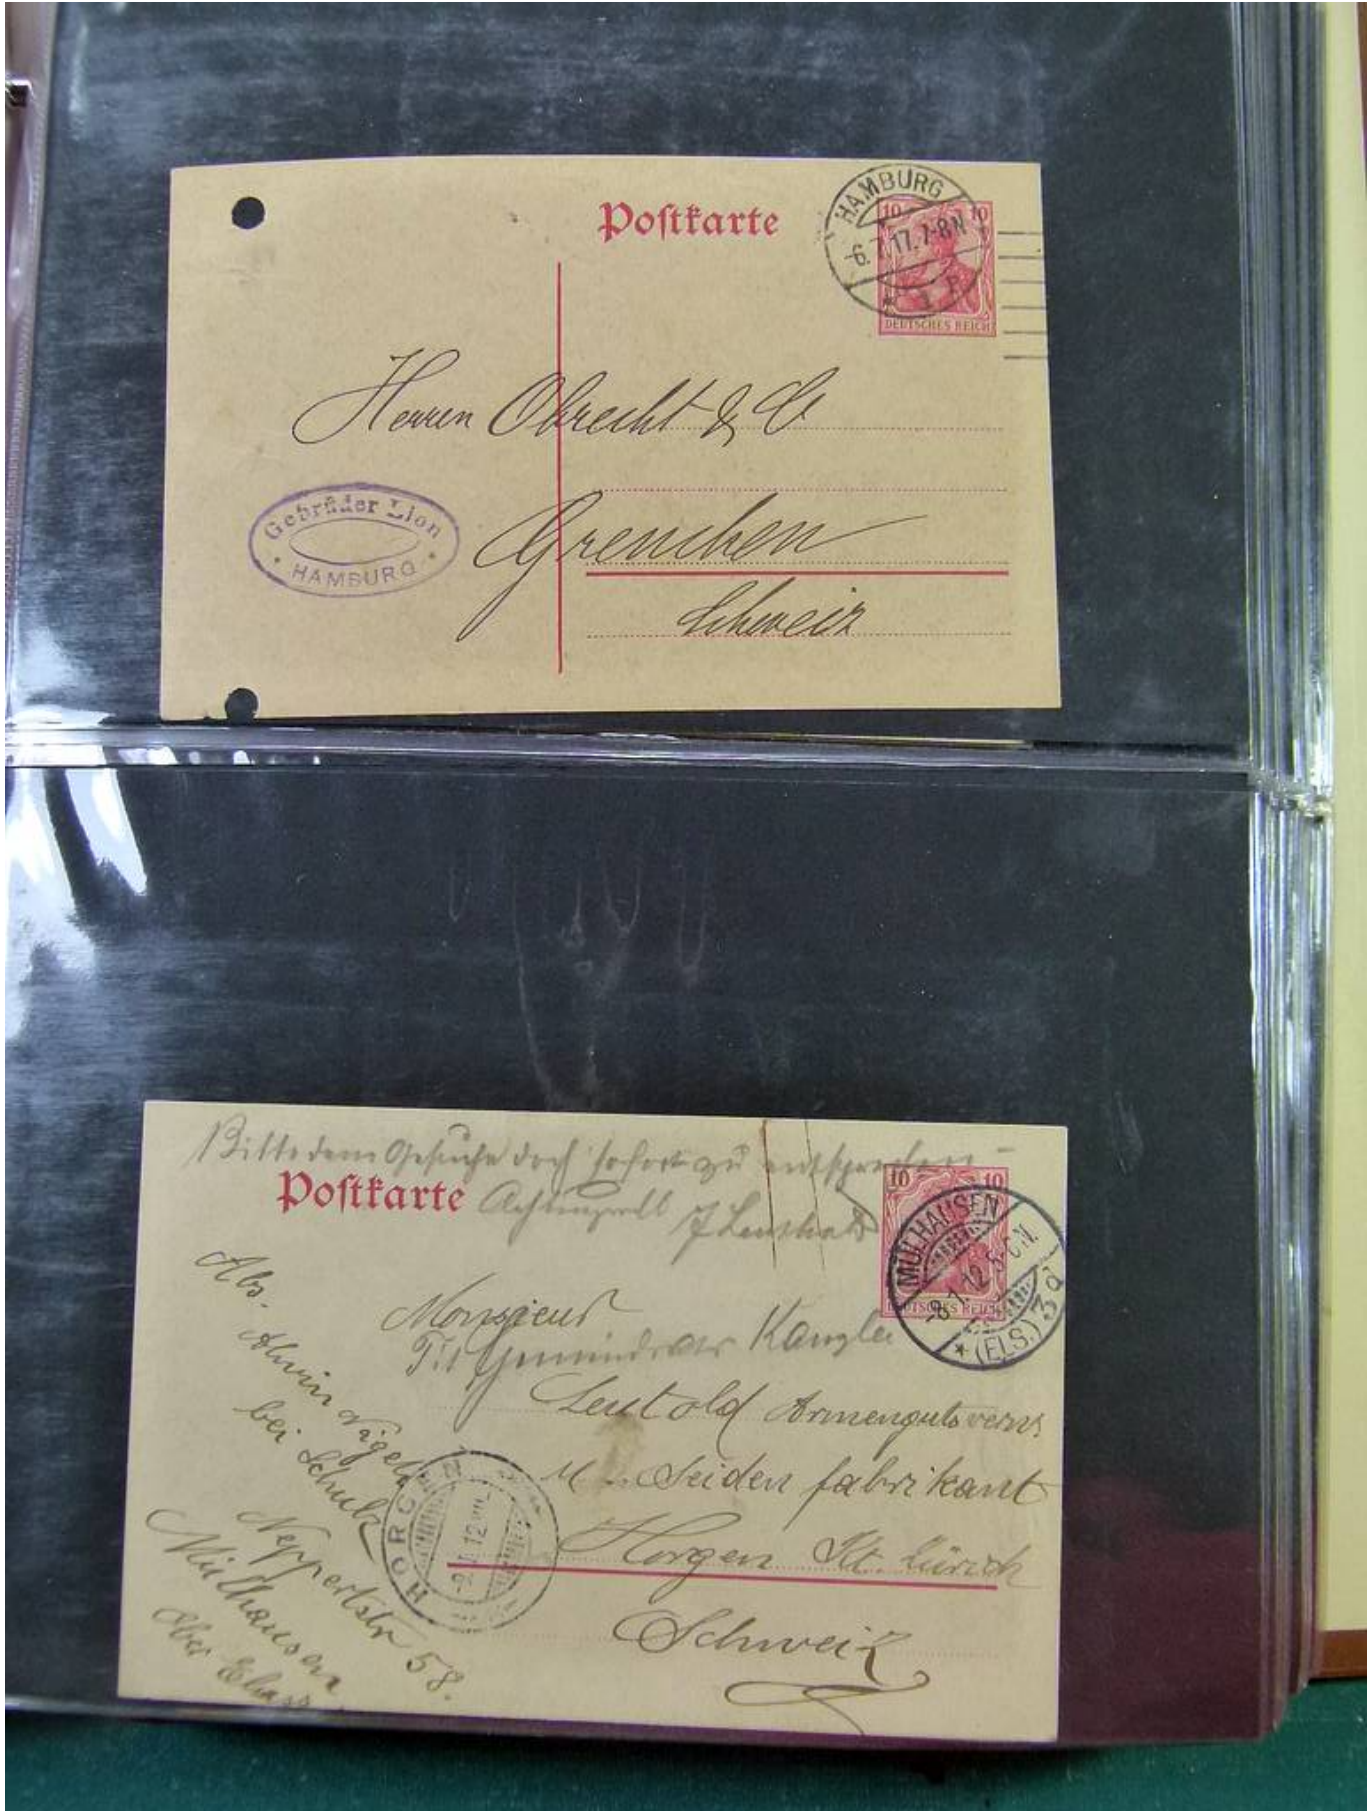 Postkarte
HAMBURG
-6.7.17.7-8N
* 1 P
10 10
DEUTSCHES REICH
Herren Obrecht & Co
Gebrüder Lion
HAMBURG
Grenchen
Schweiz
Bitte dem Gesuche doch sofort zu entsprechen
Postkarte
Achtungsvoll
10 10
DEUTSCHES REICH
MÜLHAUSEN
-8.1.12.5-6N.
* (ELS.) 3d
Monsieur
Kanzlei
Leutold Armengutsverw.
Seidenfabrikant
Horgen Kt. Zürich
Schweiz
HORGEN
Abs.
bei Schulz
Neppertstr 58.
Mülhausen
Ober Elsass